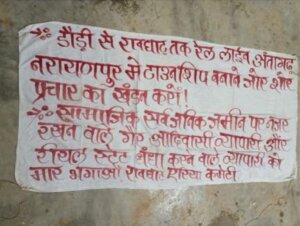 डौंडी से रावघाट तक रेल लाईन अंतागढ़
नारायणपुर में टाउनशिप बनाने जोर शोर
प्रचार का खंडन करो!
सामाजिक सर्वजनिक जमीन पर नजर
रखने वाले गैर आदिवासी व्यापारी और
रीयल स्टेट धंधा करने वाले व्यापारी को
मार भगाओ रावघाट एरिया कमेटी